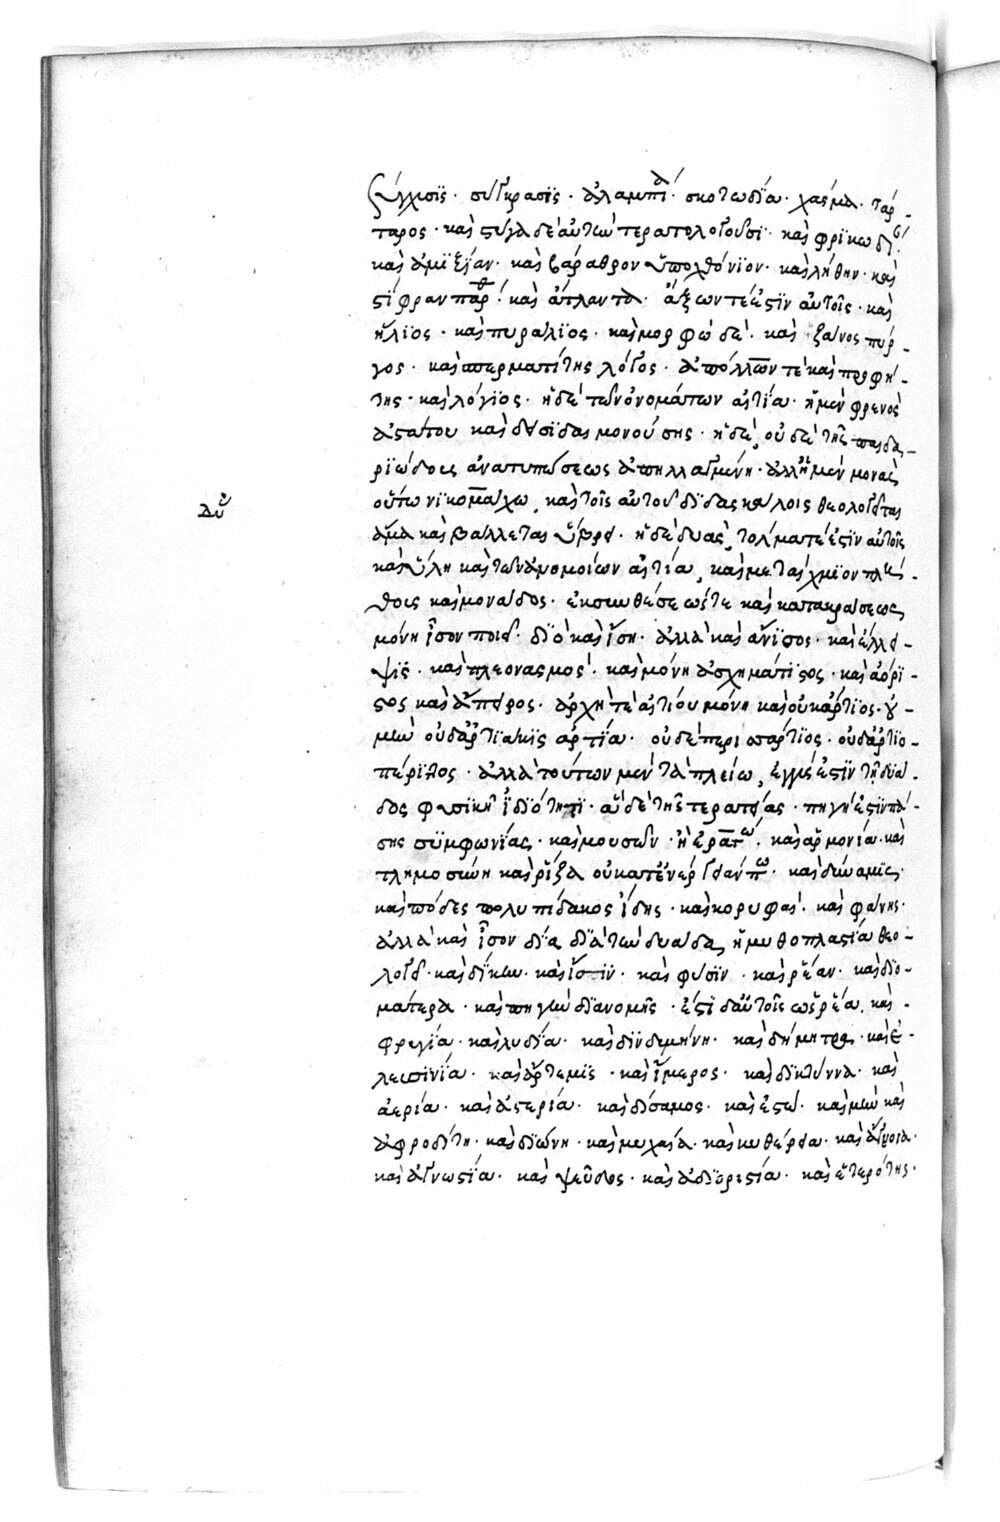 σύγχυσϊς · σύγκρασϊς · ἀλαμπία · σκοτωδΐα · χάσμα · ταρ-
ταρος · καὶ στύγα δὲ αὐτὴν τερατολογοῦσϊ · καὶ φρϊκώδη ·
καὶ ἀμϊξίαν · καὶ βάραθρον ὑποχθόνϊον · καὶ λήθην · καὶ
καὶ ἄτλαντα · ἄξων τέ ἐστϊν αὐτοῖς · καὶ
ἥλϊος · καὶ πυράλϊος · καὶ μορφὼ δέ · καὶ ζανὸς πύρ-
γος · καὶ σπερματίτης λόγος · ἀπόλλων τὲ καὶ προφή-
της · καὶ λόγϊος · ἡ δὲ τῶν ὀνομάτων αἰτία · ἡ μὲν φρενὸς
ἀστάτου καὶ δεισϊδαιμονούσης · ἡ δὲ, οὐδὲ τῆς παιδα-
ρϊώδους ἀνατυπώσεως ἀπηλλαγμένη · ἀλλ' ἡ μὲν μονὰς
οὕτω νϊκομάχω, καὶ τοῖς αὐτοῦ δϊδασκάλοις θεολογεῖται
δυ ἅμα καὶ βάλλεται ὕβρει · ἡ δὲ δυὰς, τόλμα τέ ἐστϊν αὐτοῖς
καὶ ὕλη καὶ τῶν ἀνομοίων αἰτία, καὶ μεταίχμϊον πλή-
θους καὶ μονάδος · ἐκ συνθέσεώς τε καὶ κατακράσεως
μόνη ἶσον ποιεῖ · δϊὸ καὶ ἴση · ἀλλὰ καὶ ἄνϊσος · καὶ ἔλλει-
ψϊς · καὶ πλεονασμός · καὶ μόνη ἀσχημάτϊστος · καὶ ἀόρϊ-
στος καὶ ἄπειρος · ἀρχή τὲ ἀρτίου μόνη καὶ οὐκ ἄρτϊος · οὐ
μὴν οὐδ' ἀρτϊάκϊς ἀρτία · οὐδὲ περισσάρτϊος · οὐδ' ἀρτϊο-
πέριττος · ἀλλὰ τούτων μὲν τὰ πλείω, ἐγγύς ἐστϊν τῆ δυά-
δος φυσϊκῆ ἰδϊότητϊ · ἃ δὲ τῆς τερατείας · πηγή ἐστϊν πά-
σης συμφωνΐας · καὶ μουσῶν · ἡ ἐρατώ · καὶ ἁρμονία · καὶ
τλημοσύνη καὶ ῥίζα οὐ κατ' ἐνέργειάν πω · καὶ δύναμϊς ·
καὶ πόδες πολυπίδακος ἴδης · καὶ κορυφαί · καὶ φάνης ·
ἀλλὰ καὶ ἶσον δία, δϊὰ τὴν δυάδα, ἡ μυθοπλασΐα θεο-
λογεῖ · καὶ δΐκην · καὶ ἶσϊν · καὶ φύσϊν · καὶ ῥέαν · καὶ δϊο-
μάτερα · καὶ πηγὴν δϊανομῆς · ἔστϊ δ' αὐτοῖς ὡς ῥέα, καὶ
φρυγία · καὶ λυδΐα · καὶ δϊνδυμήνη · καὶ δημήτηρ · καὶ ἐ-
λευσϊνία · καὶ ἄρτεμϊς · καὶ ἵμερος · καὶ δϊκτύννα · καὶ
ἀερία · καὶ ἀστερία · καὶ δίσαμος · καὶ ἐστὼ · καὶ μὴν καὶ
ἀφροδΐτη · καὶ δϊώνη · καὶ μυχαία · καὶ κυθέρεια · καὶ ἄγνοια ·
καὶ ἀγνωσΐα · καὶ ψεῦδος · καὶ ἀδϊορϊστία · καὶ ἑτερότης ·